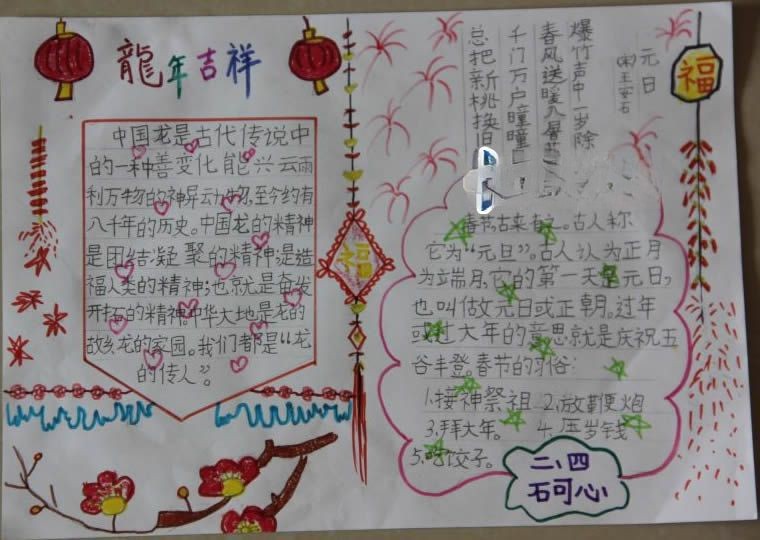 龍年吉祥
中国龙是古代传说中
的一种善变化能兴云雨
利万物的神异动物,至今约有
八千年的历史。中国龙的精神
是团结凝聚的精神;是造
福人类的精神;也就是奋发
开拓的精神。中华大地是龙的
故乡龙的家园。我们都是“龙
的传人”。
福
元日
(宋)王安石
爆竹声中一岁除
春风送暖入屠苏
千门万户瞳瞳日
总把新桃换旧
福
春节,古来有之。古人称
它为“元旦”。古人认为正月
为端月,它的第一天是元日,
也叫做元日或正朝。过年
或过大年的意思就是庆祝五
谷丰登。春节的习俗:
1、接神祭祖 2、放鞭炮
3、拜大年。 4、压岁钱
5、吃饺子。
二、四
石可心